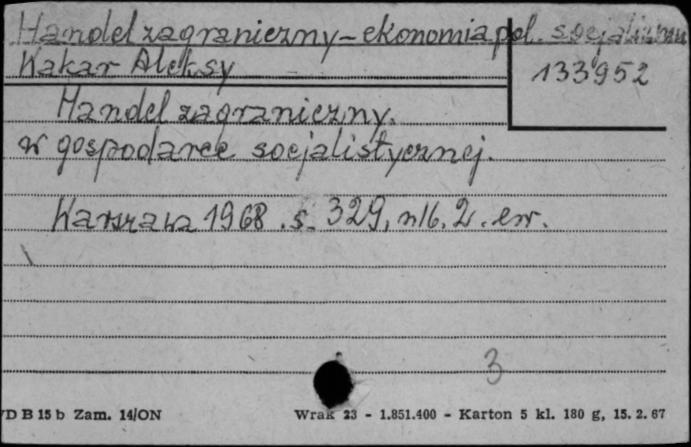 Handel zagraniczny - ekonomia pol. socjalizmu
Wakar Aleksy
133952
Handel zagraniczny.
w gospodarce socjalistycznej.
Warszawa 1968. s. 329, nlb. 2. err.
3
/D B 15 b Zam. 14/ON
Wrak 23 - 1.851.400 - Karton 5 kl. 180 g, 15. 2. 67